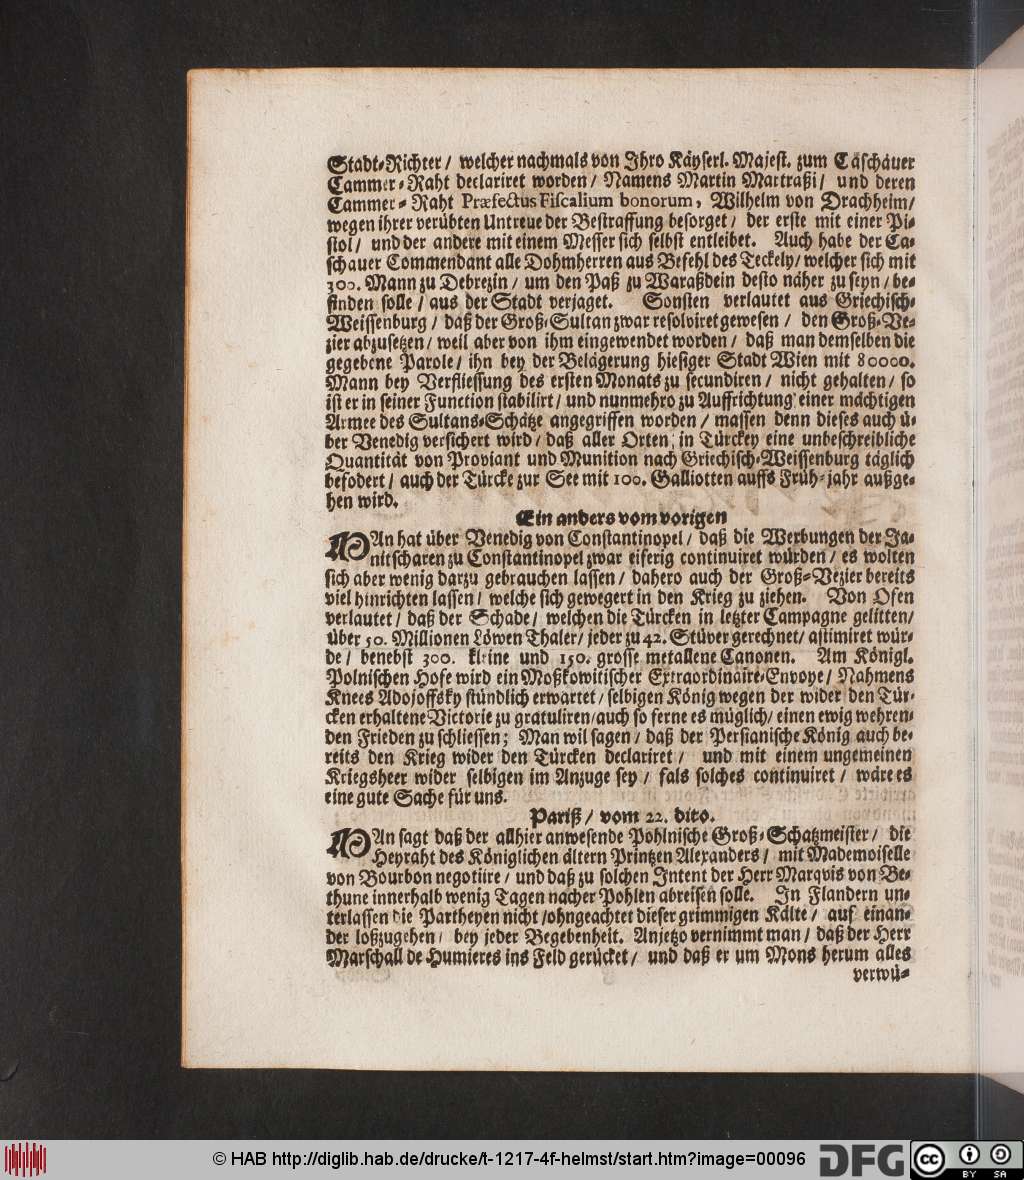 Stadt-Richter / welcher nachmals von Ihro Käyserl. Majest. zum Cäschauer
Cammer-Raht declariret worden / Namens Martin Martraßi / und deren
Cammer-Raht Præfectus Fiscalium bonorum, Wilhelm von Drachheim /
wegen ihrer verübten Untreue der Bestraffung besorget / der erste mit einer Pi-
stol / und der andere mit einem Messer sich selbst entleibet. Auch habe der Ca-
schauer Commendant alle Dohmherren aus Befehl des Teckely / welcher sich mit
300. Mann zu Debrezin / um den Paß zu Waraßdein desto näher zu seyn / be-
finden solle / aus der Stadt verjaget. Sonsten verlautet aus Griechisch-
Weissenburg / daß der Groß-Sultan zwar resolviret gewesen / den Groß-Ve-
zier abzusetzen / weil aber von ihm eingewendet worden / daß man demselben die
gegebene Parole / ihn bey der Belägerung hiesiger Stadt Wien mit 80000.
Mann bey Verfliessung des ersten Monats zu secundiren / nicht gehalten / so
ist er in seiner Function stabilirt / und nunmehro zu Auffrichtung einer mächtigen
Armee des Sultans-Schätze angegriffen worden / massen denn dieses auch ü-
ber Venedig versichert wird / daß aller Orten in Türckey eine unbeschreibliche
Quantität von Proviant und Munition nach Griechisch-Weissenburg täglich
befodert / auch der Türcke zur See mit 100. Galliotten auffs Früh-jahr außge-
hen wird.
Ein anders vom vorigen
MAn hat über Venedig von Constantinopel / daß die Werbungen der Ja-
nitscharen zu Constantinopel zwar eiferig continuiret würden / es wolten
sich aber wenig darzu gebrauchen lassen / dahero auch der Groß-Vezier bereits
viel hinrichten lassen / welche sich gewegert in den Krieg zu ziehen. Von Ofen
verlautet / daß der Schade / welchen die Türcken in letzter Campagne gelitten /
über 50. Millionen Löwen Thaler / jeder zu 42. Stüver gerechnet / astimiret wür-
de / benebst 300. kleine und 150. grosse metallene Canonen. Am Königl.
Polnischen Hofe wird ein Moßkowitischer Extraordinaire-Envoye / Nahmens
Knees Adojoffsky stündlich erwartet / selbigen König wegen der wider den Tür-
cken erhaltene Victorie zu gratuliren / auch so ferne es müglich / einen ewig wehren-
den Frieden zu schliessen; Man wil sagen / daß der Persianische König auch be-
reits den Krieg wider den Türcken declariret / und mit einem ungemeinen
Kriegsheer wider selbigen im Anzuge sey / fals solches continuiret / wäre es
eine gute Sache für uns.
Pariß / vom 22. dito.
MAn sagt daß der allhier anwesende Pohlnische Groß-Schatzmeister / die
Heyraht des Königlichen ältern Printzen Alexanders / mit Mademoiselle
von Bourbon negotiire / und daß zu solchen Intent der Herr Marqvis von Be-
thune innerhalb wenig Tagen nacher Pohlen abreisen solle. In Flandern un-
terlassen die Partheyen nicht / ohngeachtet dieser grimmigen Kälte / auf einan-
der loßzugehen / bey jeder Begebenheit. Anjetzo vernimmt man / daß der Herr
Marschall de Humieres ins Feld gerücket / und daß er um Mons herum alles
verwü-
© HAB http://diglib.hab.de/drucke/t-1217-4f-helmst/start.htm?image=00096
DFG
cc
BY SA